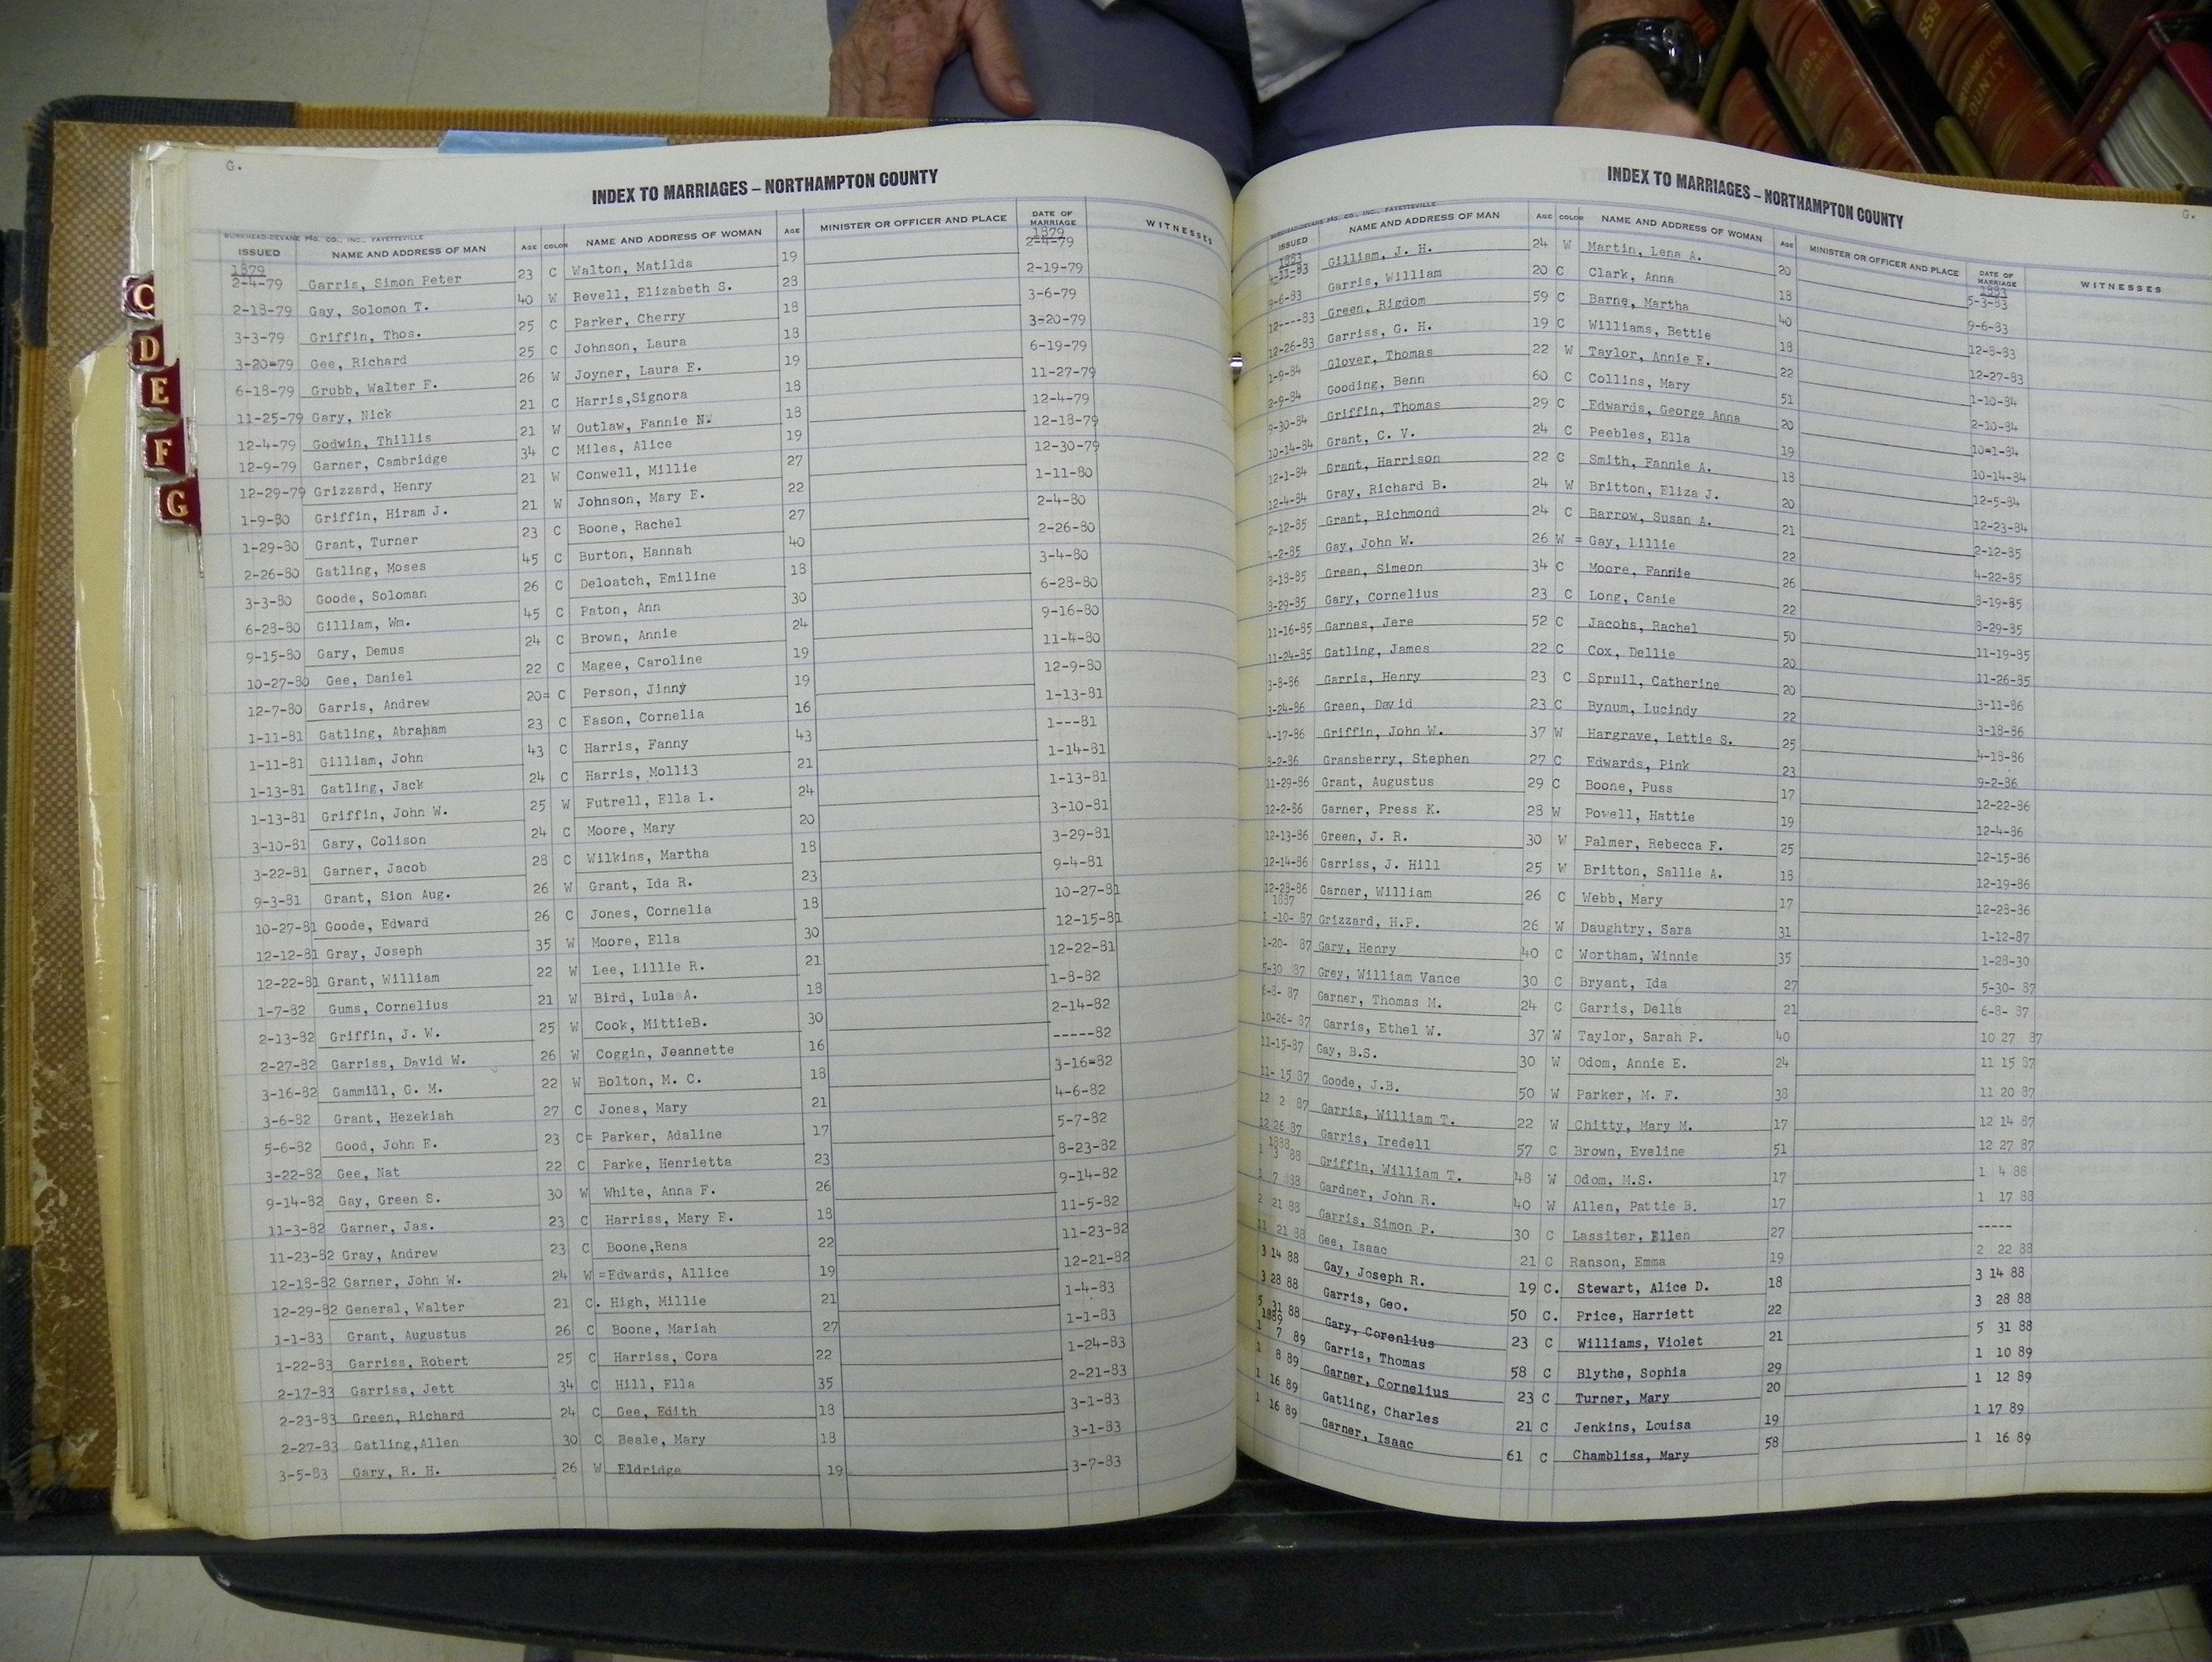 G.
INDEX TO MARRIAGES – NORTHAMPTON COUNTY
BURKHEAD-DEVANE P'G. CO., INC., FAYETTEVILLE
ISSUED NAME AND ADDRESS OF MAN AGE COLOR NAME AND ADDRESS OF WOMAN AGE MINISTER OR OFFICER AND PLACE DATE OF MARRIAGE WITNESSES
1879 1879
2-4-79 Garris, Simon Peter 23 C Walton, Matilda 19 2-4-79
2-18-79 Gay, Solomon T. 40 W Revell, Elizabeth S. 28 2-19-79
3-3-79 Griffin, Thos. 25 C Parker, Cherry 18 3-6-79
3-20=79 Gee, Richard 25 C Johnson, Laura 18 3-20-79
6-18-79 Grubb, Walter F. 26 W Joyner, Laura E. 19 6-19-79
11-25-79 Gary, Nick 21 C Harris,Signora 18 11-27-79
12-4-79 Godwin, Thillis 21 W Outlaw, Fannie N. 18 12-4-79
12-9-79 Garner, Cambridge 34 C Miles, Alice 19 12-18-79
12-29-79 Grizzard, Henry 21 W Conwell, Millie 27 12-30-79
1-9-80 Griffin, Hiram J. 21 W Johnson, Mary E. 22 1-11-80
1-29-80 Grant, Turner 23 C Boone, Rachel 27 2-4-80
2-26-80 Gatling, Moses 45 C Burton, Hannah 40 2-26-80
3-3-80 Goode, Soloman 26 C Deloatch, Emiline 18 3-4-80
6-28-80 Gilliam, Wm. 45 C Paton, Ann 30 6-28-80
9-15-80 Gary, Demus 24 C Brown, Annie 24 9-16-80
10-27-80 Gee, Daniel 22 C Magee, Caroline 19 11-4-80
12-7-80 Garris, Andrew 20= C Person, Jinny 19 12-9-80
1-11-81 Gatling, Abraham 23 C Eason, Cornelia 16 1-13-81
1-11-81 Gilliam, John 43 C Harris, Fanny 43 1---81
1-13-81 Gatling, Jack 24 C Harris, Molli3 21 1-14-81
1-13-81 Griffin, John W. 25 W Futrell, Ella L. 24 1-13-81
3-10-81 Gary, Colison 24 C Moore, Mary 20 3-10-81
3-22-81 Garner, Jacob 28 C Wilkins, Martha 18 3-29-81
9-3-81 Grant, Sion Aug. 26 W Grant, Ida R. 23 9-4-81
10-27-81 Goode, Edward 26 C Jones, Cornelia 18 10-27-81
12-12-81 Gray, Joseph 35 W Moore, Ella 30 12-15-81
12-22-81 Grant, William 22 W Lee, Lillie R. 21 12-22-81
1-7-82 Gums, Cornelius 21 W Bird, Lula A. 18 1-8-82
2-13-82 Griffin, J. W. 25 W Cook, MittieB. 30 2-14-82
2-27-82 Garriss, David W. 26 W Coggin, Jeannette 16 -----82
3-16-82 Gammill, G. M. 22 W Bolton, M. C. 18 3-16=82
3-6-82 Grant, Hezekiah 27 C Jones, Mary 21 4-6-82
5-6-82 Good, John E. 23 C= Parker, Adaline 17 5-7-82
3-22-82 Gee, Nat 22 C Parke, Henrietta 23 8-23-82
9-14-82 Gay, Green S. 30 W White, Anna F. 26 9-14-82
11-3-82 Garner, Jas. 23 C Harriss, Mary E. 18 11-5-82
11-23-82 Gray, Andrew 23 C Boone,Rena 22 11-23-82
12-18-82 Garner, John W. 24 W =Edwards, Allice 19 12-21-82
12-29-82 General, Walter 21 C. High, Millie 21 1-4-83
1-1-83 Grant, Augustus 26 C Boone, Mariah 27 1-1-83
1-22-83 Garriss, Robert 25 C Harriss, Cora 22 1-24-83
2-17-83 Garriss, Jett 34 C Hill, Ella 35 2-21-83
2-23-83 Green, Richard 24 C Gee, Edith 18 3-1-83
2-27-83 Gatling,Allen 30 C Beale, Mary 18 3-1-83
3-5-83 Gary, R. H. 26 W Eldridge 19 3-7-83
C
D
E
F
G
G.
INDEX TO MARRIAGES – NORTHAMPTON COUNTY
BURKHEAD-DEVANE MFG. CO., INC., FAYETTEVILLE
ISSUED NAME AND ADDRESS OF MAN AGE COLOR NAME AND ADDRESS OF WOMAN AGE MINISTER OR OFFICER AND PLACE DATE OF MARRIAGE WITNESSES
1883 1883
Gilliam, J. H. 24 W Martin, Lena A. 20 5-3-83
9-6-83 Garris, William 20 C Clark, Anna 18 9-6-83
12----83 Green, Rigdom 59 C Barne, Martha 40 12-8-83
12-26-83 Garriss, G. H. 19 C Williams, Bettie 18 12-27-83
1-9-84 Glover, Thomas 22 W Taylor, Annie E. 22 1-10-84
2-9-84 Gooding, Benn 60 C Collins, Mary 51 2-10-84
9-30-84 Griffin, Thomas 29 C Edwards, George Anna 20 10=1-84
10-14-84 Grant, C. V. 24 C Peebles, Ella 19 10-14-84
12-1-84 Grant, Harrison 22 C Smith, Fannie A. 18 12-5-84
12-4-84 Gray, Richard B. 24 W Britton, Eliza J. 20 12-23-84
2-12-85 Grant, Richmond 24 C Barrow, Susan A. 21 2-12-85
4-2-85 Gay, John W. 26 W = Gay, Lillie 22 4-22-85
8-18-85 Green, Simeon 34 C Moore, Fannie 26 8-19-85
8-29-85 Gary, Cornelius 23 C Long, Canie 22 8-29-85
11-16-85 Garnes, Jere 52 C Jacobs, Rachel 50 11-19-85
11-24-85 Gatling, James 22 C Cox, Dellie 20 11-26-85
3-8-86 Garris, Henry 23 C Spruil, Catherine 20 3-11-86
3-24-86 Green, David 23 C Bynum, Lucindy 22 3-18-86
4-17-86 Griffin, John W. 37 W Hargrave, Lettie S. 25 4-18-86
Gransberry, Stephen 27 C Edwards, Pink 23 9-2-86
11-29-86 Grant, Augustus 29 C Boone, Puss 17 12-22-86
12-2-86 Garner, Press K. 28 W Powell, Hattie 19 12-4-86
12-13-86 Green, J. R. 30 W Palmer, Rebecca F. 25 12-15-86
12-14-86 Garriss, J. Hill 25 W Britton, Sallie A. 18 12-19-86
12-28-86 Garner, William 26 C Webb, Mary 17 12-28-86
1887
1 -10- 87 Grizzard, H.P. 26 W Daughtry, Sara 31 1-12-87
1-20- 87 Gary, Henry 40 C Wortham, Winnie 35 1-28-30
5-30 87 Grey, William Vance 30 C Bryant, Ida 27 5-30- 87
6-8- 87 Garner, Thomas M. 24 C Garris, Della 21 6-8- 87
10-26- 87 Garris, Ethel W. 37 W Taylor, Sarah P. 40 10 27 87
11-15-87 Gay, B.S. 30 W Odom, Annie E. 24 11 15 87
11- 15 87 Goode, J.B. 50 W Parker, M. F. 38 11 20 87
12 2 87 Garris, William T. 22 W Chitty, Mary M. 17 12 14 87
12 26 87 Garris, Iredell 57 C Brown, Eveline 51 12 27 87
1888
1 3 88 Griffin, William T. 48 W Odom, M.S. 17 1 4 88
1 7 88 Gardner, John R. 40 W Allen, Pattie B. 17 1 17 88
2 21 88 Garris, Simon P. 30 C Lassiter, Ellen 27 -----
21 88 Gee, Isaac 21 C Ranson, Emma 19 2 22 88
3 14 88 Gay, Joseph R. 19 C. Stewart, Alice D. 18 3 14 88
3 28 88 Garris, Geo. 50 C. Price, Harriett 22 3 28 88
5 31 88 Gary, Corenlius 23 C Williams, Violet 21 5 31 88
1889
1 7 89 Garris, Thomas 58 C Blythe, Sophia 29 1 10 89
1 8 89 Garner, Cornelius 23 C Turner, Mary 20 1 12 89
1 16 89 Gatling, Charles 21 C Jenkins, Louisa 19 1 17 89
1 16 89 Garner, Isaac 61 C Chambliss, Mary 58 1 16 89
NORTHAMPTON COUNTY
559